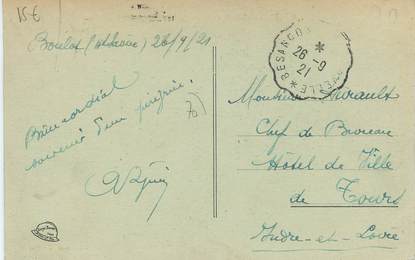 15€
Boulot (Hte Saône) 26/9/21
Bien cordial
souvenir d'un
70
BESANÇON
26-9
21
Monsieur Mirault
Chef de Bureau
Hôtel de Ville
de Tours
Indre-et-Loire